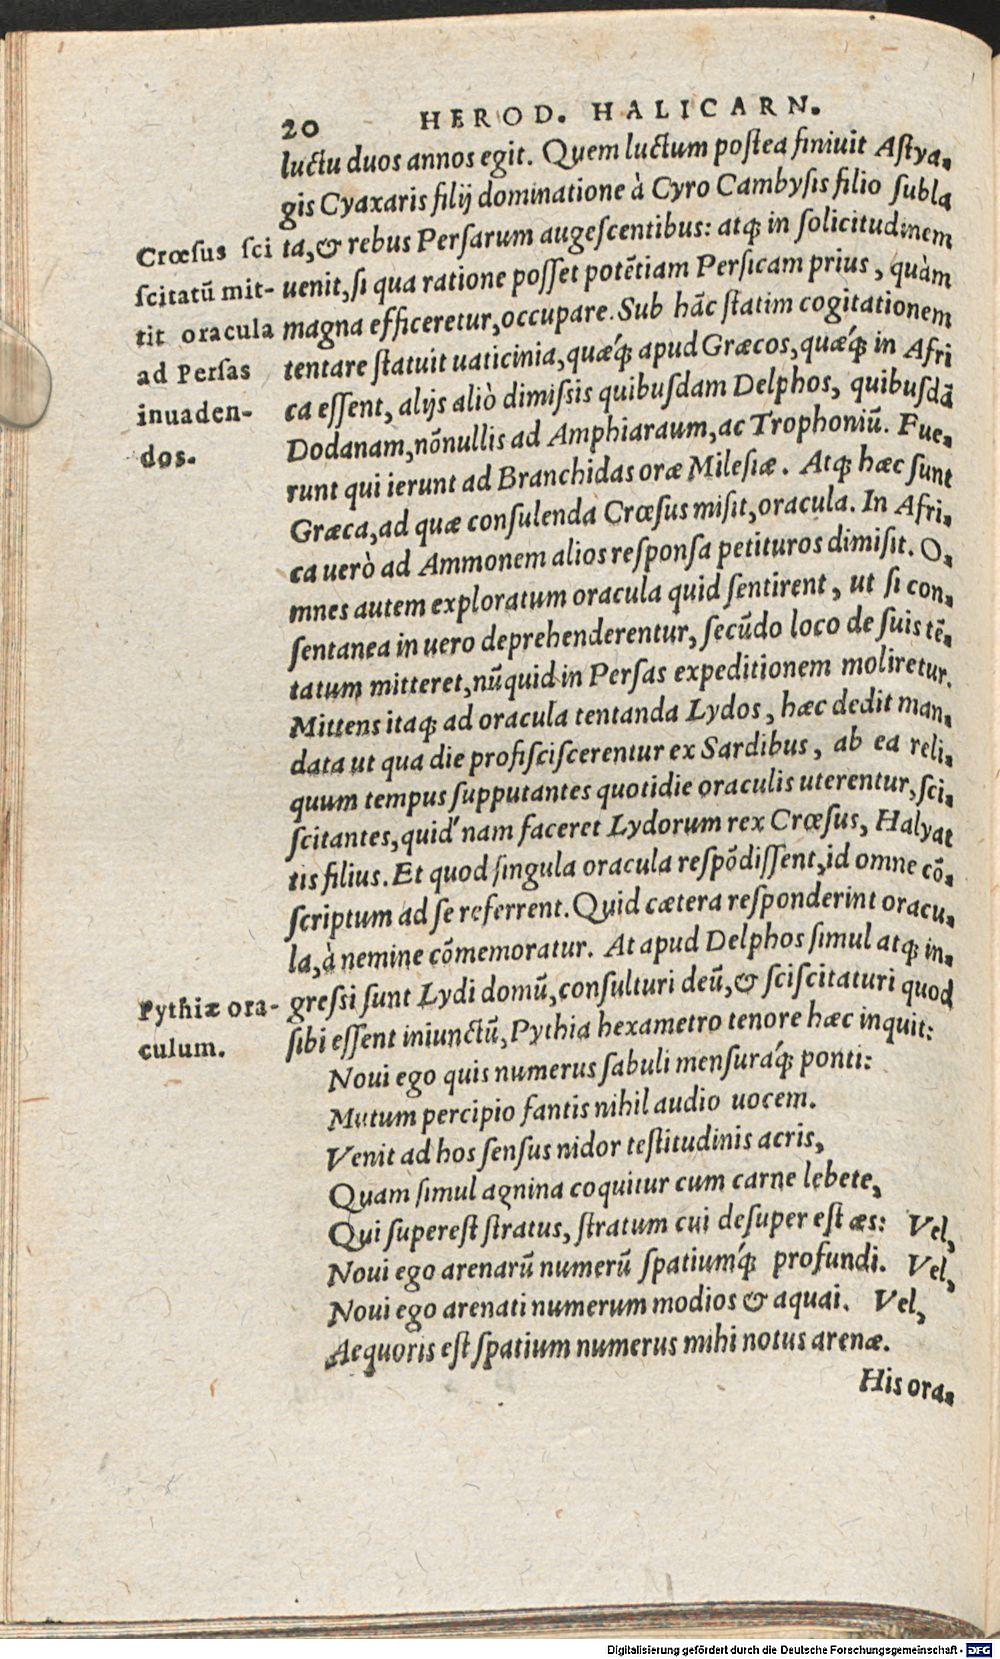 20 HEROD. HALICARN.
luctu duos annos egit. Quem luctum poſtea finiuit Aſtya-
gis Cyaxaris filij dominatione à Cyro Cambyſis filio ſubla
ta, & rebus Perſarum augeſcentibus: atq́; in ſolicitudinem
uenit, ſi qua ratione poſſet potẽtiam Perſicam prius, quàm
magna efficeretur, occupare. Sub hãc ſtatim cogitationem
tentare ſtatuit uaticinia, quæq́; apud Græcos, quæq́; in Afri
ca eſſent, alijs aliò dimiſsis quibuſdam Delphos, quibuſdã
Dodanam, nõnullis ad Amphiaraum, ac Trophoniũ. Fue-
runt qui ierunt ad Branchidas oræ Mileſiæ. Atq; hæc ſunt
Græca, ad quæ conſulenda Crœſus miſit, oracula. In Afri-
ca uerò ad Ammonem alios reſponſa petituros dimiſit. O-
mnes autem exploratum oracula quid ſentirent, ut ſi con-
ſentanea in uero deprehenderentur, ſecũdo loco de ſuis tẽ-
tatum mitteret, nũquid in Perſas expeditionem moliretur.
Mittens itaq; ad oracula tentanda Lydos, hæc dedit man-
data ut qua die profiſciſcerentur ex Sardibus, ab ea reli-
quum tempus ſupputantes quotidie oraculis uterentur, ſci-
ſcitantes, quid'nam faceret Lydorum rex Crœſus, Halyat
tis filius. Et quod ſingula oracula reſpõdiſſent, id omne cõ-
ſcriptum ad ſe referrent. Quid cætera reſponderint oracu-
la, à nemine cõmemoratur. At apud Delphos ſimul atq; in-
greſsi ſunt Lydi domũ, conſulturi deũ, & ſciſcitaturi quod
ſibi eſſent iniunctũ, Pythia hexametro tenore hæc inquit:
Noui ego quis numerus ſabuli menſuraq́; ponti:
Mutum percipio fantis nihil audio uocem.
Venit ad hos ſenſus nidor teſtitudinis acris,
Quam ſimul agnina coquitur cum carne lebete,
Qui ſupereſt ſtratus, ſtratum cui deſuper eſt æs: Vel,
Noui ego arenarũ numerũ ſpatiumq́; profundi. Vel,
Noui ego arenati numerum modios & aquai. Vel,
Aequoris eſt ſpatium numerus mihi notus arenæ.
His ora-
Crœſus ſci
ſcitatũ mit-
tit oracula
ad Perſas
inuaden-
dos.
Pythiæ ora-
culum.
Digitalisierung gefördert durch die Deutsche Forschungsgemeinschaft - DFG